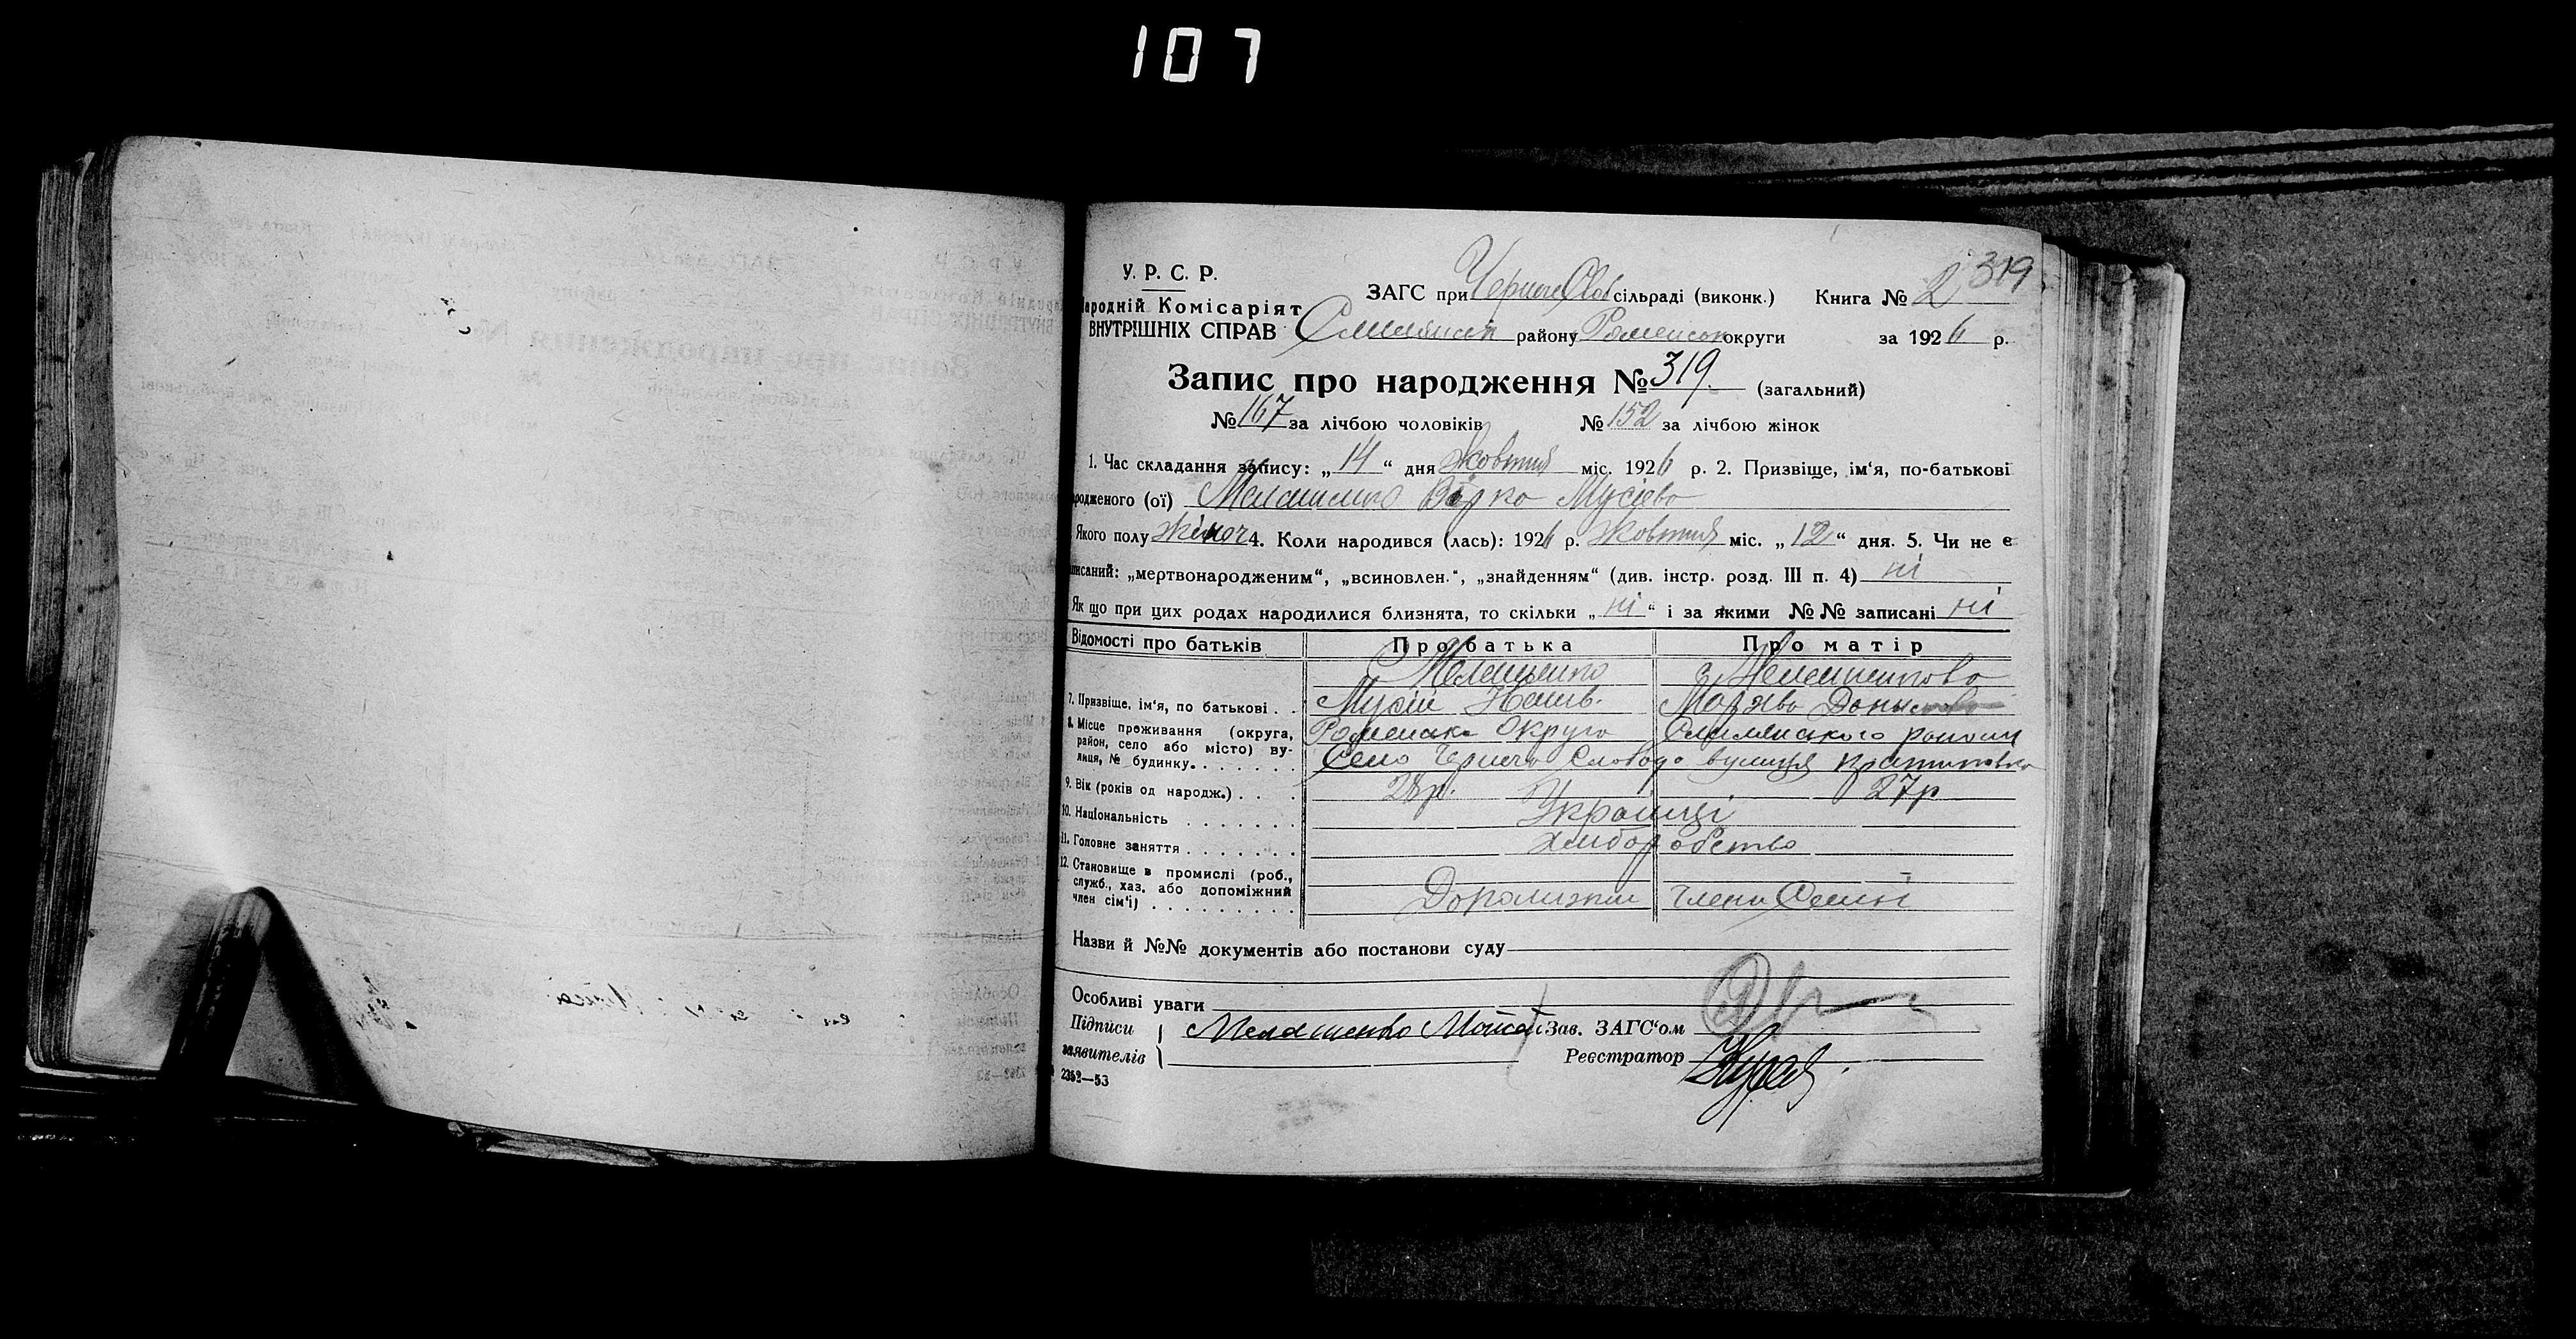 107
319
У. Р. С. Р.
Народній Комісаріят
ВНУТРІШНІХ СПРАВ
ЗАГС при Черноslob сільраді (виконк.) Книга № 2
району Роменськ округи за 1926 р.
Запис про народження № 319. (загальний)
№ 167 за лічбою чоловіків № 152 за лічбою жінок
1. Час складання запису: „ 14 “ дня жовтня міс. 1926 р. 2. Призвіще, ім‘я, по-батькові
родженого (ої) Мелашенко Вірка Мусієва
Якого полу жіноч 4. Коли народився (лась): 1926 р. жовтня міс. „ 12 “ дня. 5. Чи не є
писаний: „мертвонародженим“, „всиновлен.“, „знайденням“ (див. інстр. розд. III п. 4) ні
Як що при цих родах народилися близнята, то скільки „ ні “ і за якими №№ записані ні
Відомості про батьків Про батька Про матір
Мелашенко
7. Призвіще, ім‘я, по батькові . . Мусій
8. Місце проживання (округа, район, село або місто) вулиця, № будинку. . . . . . . Роменська Округа Смілянського району
Село Чернеча Слобода вулиця
9. Вік (років од народж.) . . . 28р. 27р
10. Національність . . . . . . . Українці
11. Головне заняття . . . . . . . хліборобство
12. Становище в промислі (роб., служб., хаз. або допоміжний член сім‘ї) . . . . . . . . . Допоміжні члени Семні
Назви й №№ документів або постанови суду
Особливі уваги
Підписи Мелашенко Зав. ЗАГС‘ом
заявителів Реєстратор
2352—53